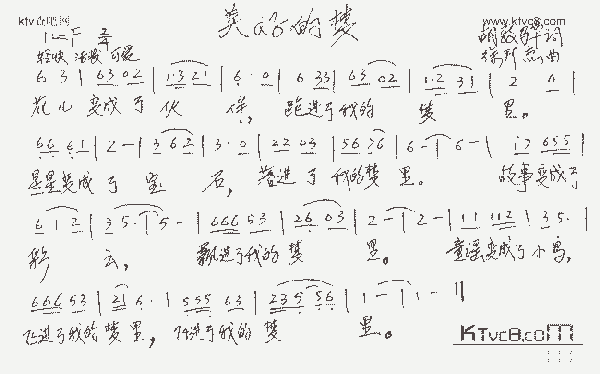 www.ktvc8.com
美好的梦
1=F 2/4
轻快 活泼 可爱
词
曲
6 3 | 63 02 | 1·3 21 | 6·0 | 6 33 | 63 02 | 1·2 31 | 2 0 |
花儿变成了伙伴,跑进了我的梦里。
66 61 | 2 - | 3 62 | 3·0 | 22 03 | 56 76 | 6 - | 6 - | 12 655 |
星星变成了宝石,落进了我的梦里。故事变成了
6 12 | 35· | 5 - | 666 53 | 26 03 | 2 - | 2 - | 11 112 | 35· |
彩云,飘进了我的梦里。童谣变成了小鸟,
666 53 | 21 6· | 555 63 | 235 56 | 1 - | 1 - ||
飞进了我的梦里,飞进了我的梦里。
KTVC8.COM